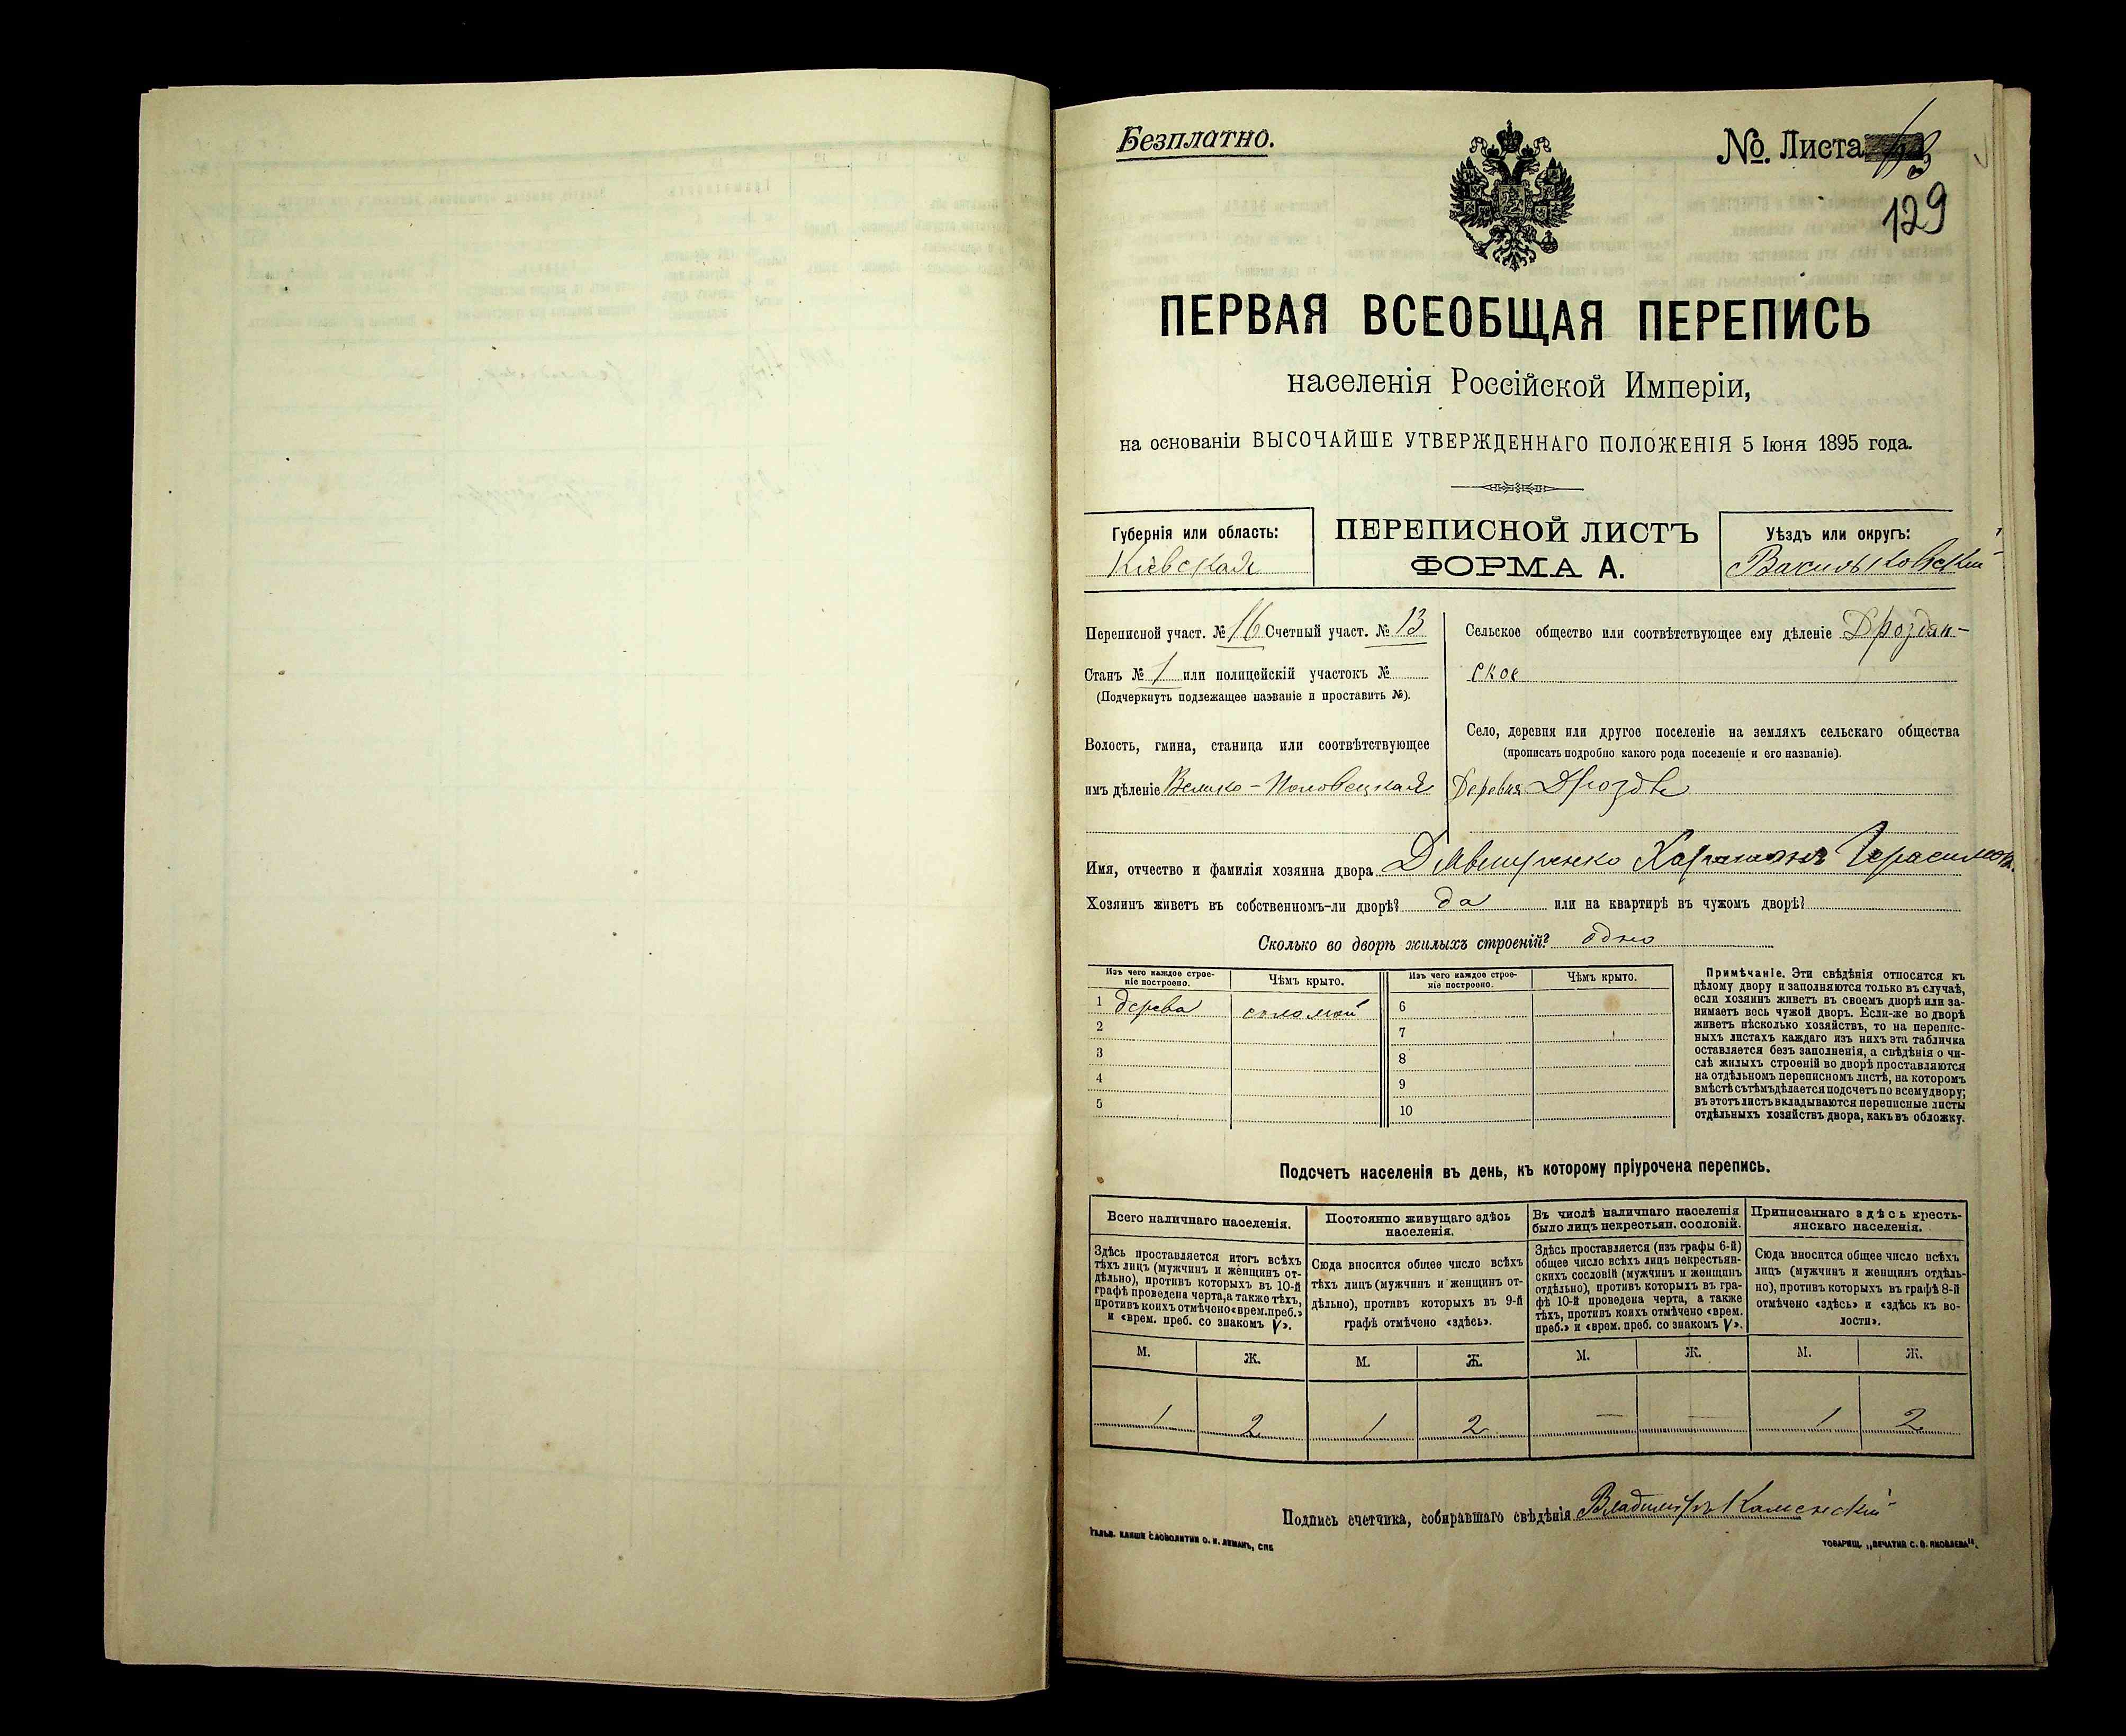 Безплатно.
№. Листа
129
ПЕРВАЯ ВСЕОБЩАЯ ПЕРЕПИСЬ
населенія Россійской Имперіи,
на основаніи ВЫСОЧАЙШЕ УТВЕРЖДЕННАГО ПОЛОЖЕНІЯ 5 Іюня 1895 года.
Губернія или область:
Кіевская
ПЕРЕПИСНОЙ ЛИСТЪ
ФОРМА А.
Уѣздъ или округъ:
Васильковскій
Переписной участ. № 16 Счетный участ. № 13
Станъ № 1 или полицейскій участокъ №
(Подчеркнуть подлежащее названіе и проставить №).
Волость, гмина, станица или соотвѣтствующее
имъ дѣленіе Велико-Половецкая
Сельское общество или соотвѣтствующее ему дѣленіе Дроздян-
ское
Село, деревня или другое поселеніе на земляхъ сельскаго общества
(прописать подробно какого рода поселеніе и его названіе).
Деревня Дрозды
Имя, отчество и фамилія хозяина двора Харитонъ Герасимов.
Хозяинъ живетъ въ собственномъ-ли дворѣ? да или на квартирѣ въ чужомъ дворѣ?
Сколько во дворѣ жилыхъ строеній? одно
Изъ чего каждое строе-
ніе построено.
Чѣмъ крыто.
Изъ чего каждое строе-
ніе построено.
Чѣмъ крыто.
1 дерева соломой 6
2 7
3 8
4 9
5 10
Примѣчаніе. Эти свѣдѣнія относятся къ
цѣлому двору и заполняются только въ случаѣ,
если хозяинъ живетъ въ своемъ дворѣ или за-
нимаетъ весь чужой дворъ. Если-же во дворѣ
живетъ нѣсколько хозяйствъ, то на перепис-
ныхъ листахъ каждаго изъ нихъ эта табличка
оставляется безъ заполненія, а свѣдѣнія о чи-
слѣ жилыхъ строеній во дворѣ проставляются
на отдѣльномъ переписномъ листѣ, на которомъ
вмѣстѣ съ тѣмъ дѣлается подсчетъ по всему двору;
въ этотъ листъ вкладываются переписные листы
отдѣльныхъ хозяйствъ двора, какъ въ обложку.
Подсчетъ населенія въ день, къ которому пріурочена перепись.
Всего наличнаго населенія.
Здѣсь проставляется итогъ всѣхъ
тѣхъ лицъ (мужчинъ и женщинъ от-
дѣльно), противъ которыхъ въ 10-й
графѣ проведена черта, а также тѣхъ,
противъ коихъ отмѣчено «врем. преб.»
и «врем. преб. со знакомъ V».
Постоянно живущаго здѣсь
населенія.
Сюда вносится общее число всѣхъ
тѣхъ лицъ (мужчинъ и женщинъ от-
дѣльно), противъ которыхъ въ 9-й
графѣ отмѣчено «здѣсь».
Въ числѣ наличнаго населенія
было лицъ некрестьян. сословій.
Здѣсь проставляется (изъ графы 6-й)
общее число всѣхъ лицъ некрестьян-
скихъ сословій (мужчинъ и женщинъ
отдѣльно), противъ которыхъ въ гра-
фѣ 10-й проведена черта, а также
тѣхъ, противъ коихъ отмѣчено «врем.
преб.» и «врем. преб. со знакомъ V».
Приписаннаго здѣсь кресть-
янскаго населенія.
Сюда вносится общее число всѣхъ
лицъ (мужчинъ и женщинъ отдѣль-
но), противъ которыхъ въ графѣ 8-й
отмѣчено «здѣсь» и «здѣсь къ во-
лости».
М. Ж. М. Ж. М. Ж. М. Ж.
1 2 1 2 — — 1 2
Подпись счетчика, собиравшаго свѣдѣнія Владиміръ Каменскій
ГАЛЬВ. КЛИШИ СЛОВОЛИТНИ О. И. ЛЕМАНЪ, СПБ
ТОВАРИЩ. „ПЕЧАТНЯ С. П. ЯКОВЛЕВА".